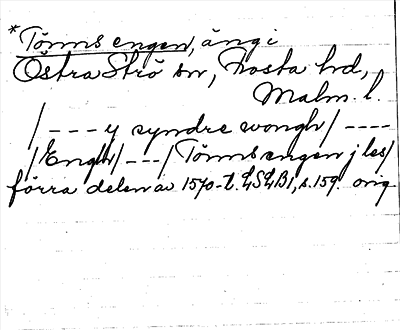 *Tönns engen, äng i
Östra Strö sn, Frosta hd,
Malm. l.
/ - - - y syndre wongh / - - - -
/ Engh / - - - / Tönns engen j les /
förra delen av 1570-t. LSLB1, s. 159. orig